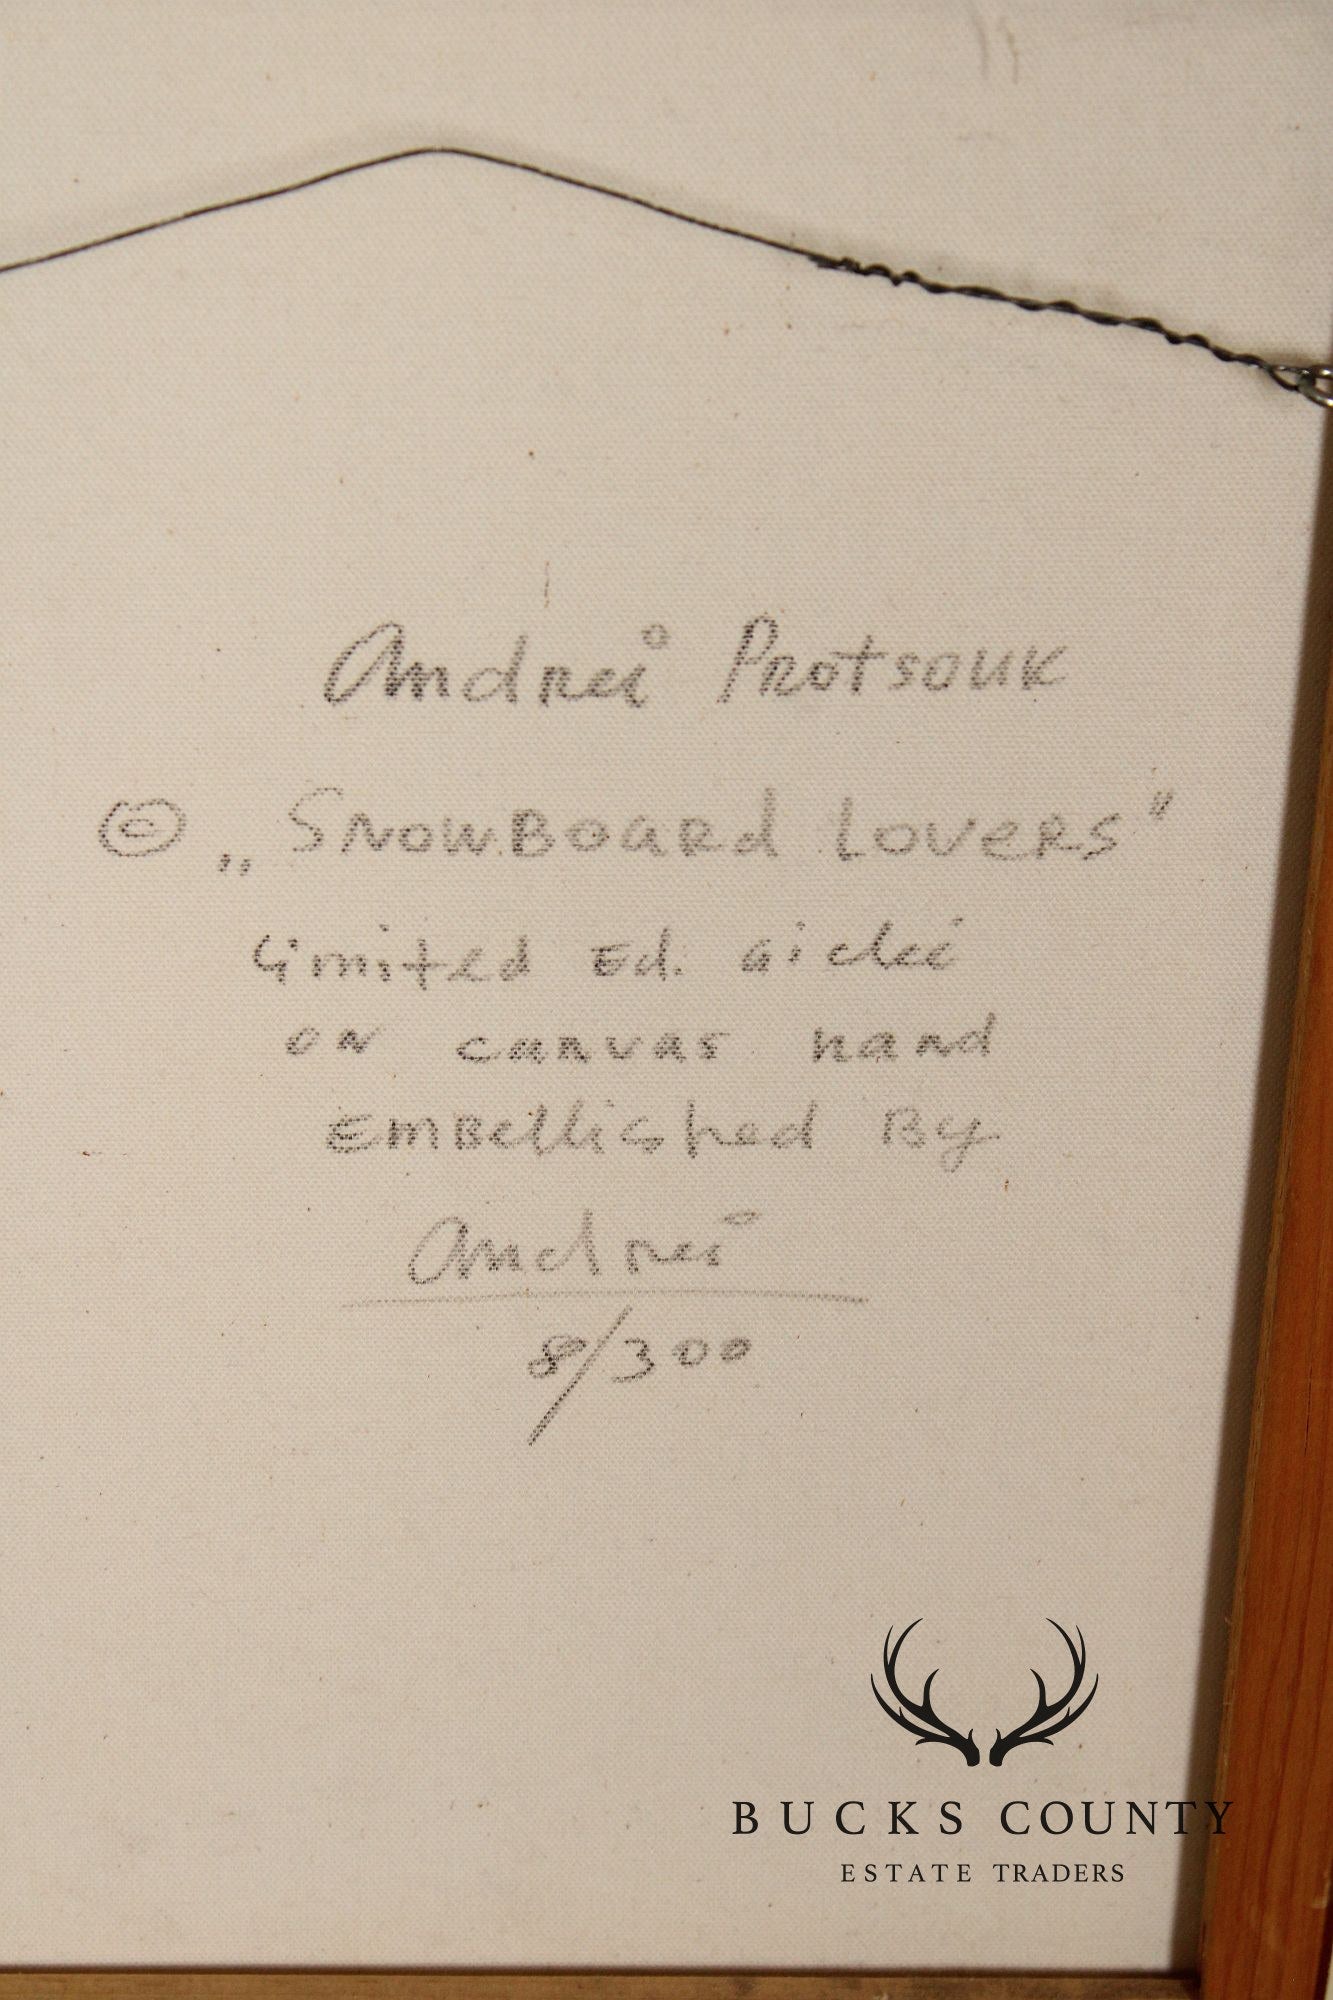 Andrei Protsouk
© „Snowboard Lovers"
Limited Ed. Gicleé
on canvas hand
Embellished By
Andrei
8/300
BUCKS COUNTY
ESTATE TRADERS